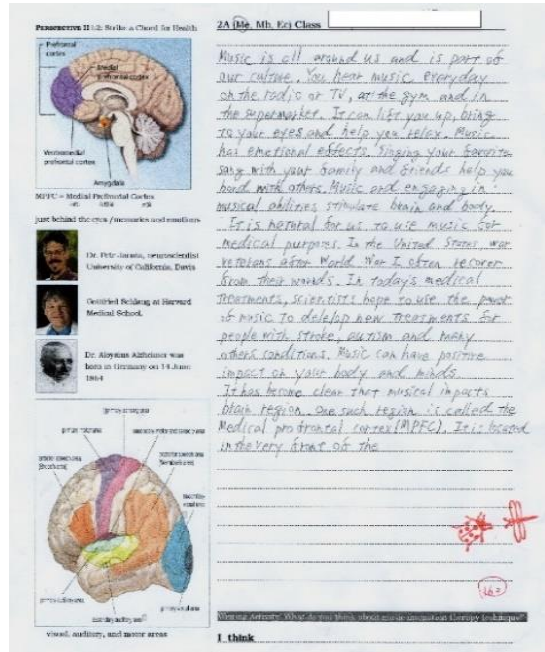 PERSPECTIVE II 1.2: Strike a Chord for Health
Prefrontal
cortex
Medial
prefrontal cortex
Ventromedial
prefrontal cortex
Amygdala
MPFC = Medial Prefrontal Cortex
just behind the eyes / memories and emotions
Dr. Petr Janata, neuroscientist
University of California, Davis
Gottfried Schlaug at Harvard
Medical School.
Dr. Aloysius Alzheimer was
born in Germany on 14 June
1864
visual, auditory, and motor areas
2A (Me, Mh, Ec) Class
Music is all around us and is part of
our culture. You hear music everyday
on the radio or TV, at the gym and in
the supermarket. It can lift you up, bring
to your eyes and help you relax. Music
has emotional effects. Singing your favorite
song with your family and friends help you
bond with others. Music and engaging in
musical abilities stimulate brain and body.
It is natural for us to use music for
medical purposes. In the United States, war
veterans after World War I often recover
from their wounds. In today's medical
treatments, scientists hope to use the power
of music to develop new treatments for
people with stroke, autism and many
others conditions. Music can have positive
impact on your body and minds.
It has become clear that musical impacts
brain region. One such region is called the
Medical profrontal cortex (MPFC). It is located
in the very front of the
162
Writing Activity: What do you think about music
I think